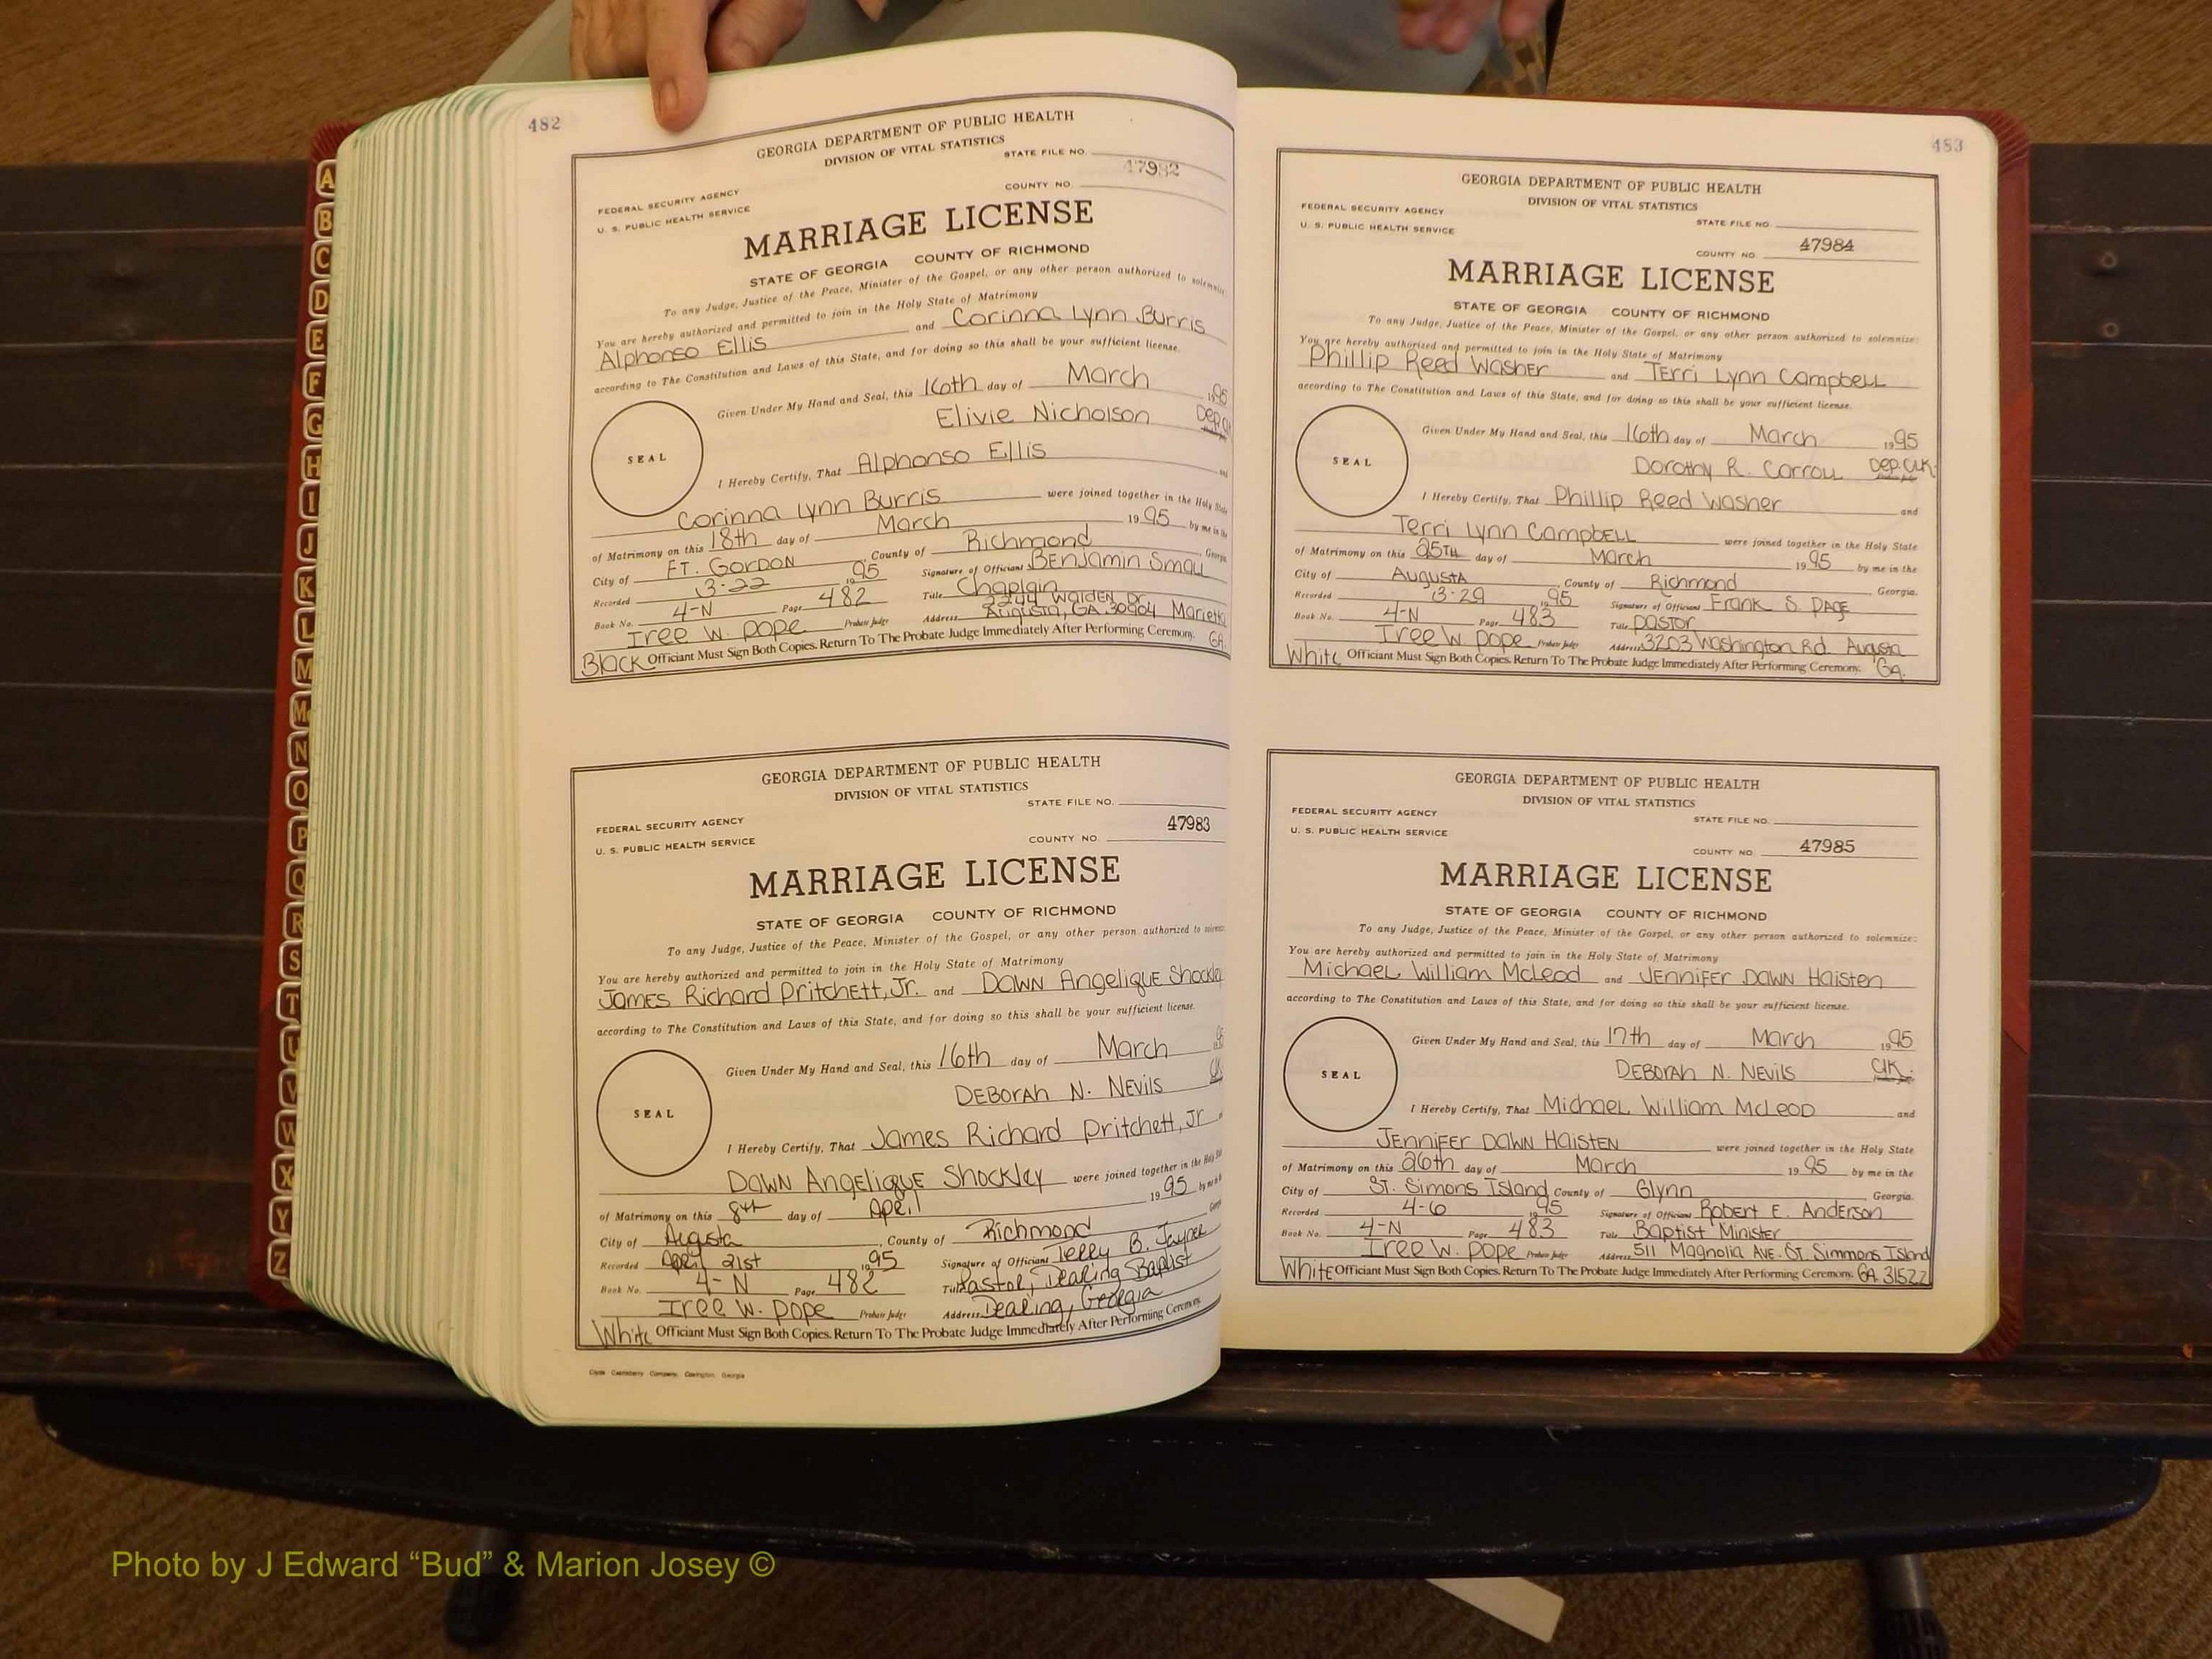 482
GEORGIA DEPARTMENT OF PUBLIC HEALTH
DIVISION OF VITAL STATISTICS
STATE FILE NO.
47982
FEDERAL SECURITY AGENCY
COUNTY NO.
U. S. PUBLIC HEALTH SERVICE
MARRIAGE LICENSE
STATE OF GEORGIA COUNTY OF RICHMOND
To any Judge, Justice of the Peace, Minister of the Gospel, or any other person authorized to solemnize:
You are hereby authorized and permitted to join in the Holy State of Matrimony
Alphonso Ellis and Corinna Lynn Burris
according to The Constitution and Laws of this State, and for doing so this shall be your sufficient license.
Given Under My Hand and Seal, this 16th day of March 1995
Elivie Nicholson
SEAL
I Hereby Certify, That Alphonso Ellis and
Corinna Lynn Burris were joined together in the Holy State
of Matrimony on this 18th day of March 1995 by me in the
City of Ft. Gordon, County of Richmond, Georgia
Recorded 3-22 1995 Signature of Officiant Benjamin Small
Book No. 4-N Page 482 Title Chaplain
2244 Walden Dr.
Iree W. Pope Probate Judge Address Augusta, GA 30904 Marietta
GA.
Black Officiant Must Sign Both Copies. Return To The Probate Judge Immediately After Performing Ceremony.
GEORGIA DEPARTMENT OF PUBLIC HEALTH
DIVISION OF VITAL STATISTICS
STATE FILE NO.
FEDERAL SECURITY AGENCY
47983
U. S. PUBLIC HEALTH SERVICE
COUNTY NO.
MARRIAGE LICENSE
STATE OF GEORGIA COUNTY OF RICHMOND
To any Judge, Justice of the Peace, Minister of the Gospel, or any other person authorized to
You are hereby authorized and permitted to join in the Holy State of Matrimony
James Richard Pritchett, Jr. and Dawn Angelique Shockley
according to The Constitution and Laws of this State, and for doing so this shall be your sufficient license.
Given Under My Hand and Seal, this 16th day of March
Deborah N. Nevils Clk
SEAL
I Hereby Certify, That James Richard Pritchett, Jr
Dawn Angelique Shockley were joined together in the Holy
of Matrimony on this 8th day of April 1995 by me
City of Augusta, County of Richmond
Recorded April 21st 1995 Signature of Officiant Terry B. Jayner
Book No. 4-N Page 482 Title Pastor, Dearing Baptist
Iree W. Pope Probate Judge Address Dearing, Georgia
White Officiant Must Sign Both Copies. Return To The Probate Judge Immediately After Performing Ceremony.
Clyde Castleberry Company, Covington, Georgia
483
GEORGIA DEPARTMENT OF PUBLIC HEALTH
DIVISION OF VITAL STATISTICS
FEDERAL SECURITY AGENCY
STATE FILE NO.
U. S. PUBLIC HEALTH SERVICE
47984
COUNTY NO.
MARRIAGE LICENSE
STATE OF GEORGIA COUNTY OF RICHMOND
To any Judge, Justice of the Peace, Minister of the Gospel, or any other person authorized to solemnize:
You are hereby authorized and permitted to join in the Holy State of Matrimony
Phillip Reed Washer and Terri Lynn Campbell
according to The Constitution and Laws of this State, and for doing so this shall be your sufficient license.
Given Under My Hand and Seal, this 16th day of March 1995
Dorothy R. Carroll Dep. Clk.
SEAL
I Hereby Certify, That Phillip Reed Washer and
Terri Lynn Campbell were joined together in the Holy State
of Matrimony on this 25th day of March 1995 by me in the
City of Augusta, County of Richmond, Georgia.
Recorded 3-29 1995 Signature of Officiant Frank S. Page
Book No. 4-N Page 483 Title Pastor
Iree W. Pope Probate Judge Address 3203 Washington Rd. Augusta
White Officiant Must Sign Both Copies. Return To The Probate Judge Immediately After Performing Ceremony. GA.
GEORGIA DEPARTMENT OF PUBLIC HEALTH
DIVISION OF VITAL STATISTICS
FEDERAL SECURITY AGENCY
STATE FILE NO.
U. S. PUBLIC HEALTH SERVICE
47985
COUNTY NO.
MARRIAGE LICENSE
STATE OF GEORGIA COUNTY OF RICHMOND
To any Judge, Justice of the Peace, Minister of the Gospel, or any other person authorized to solemnize:
You are hereby authorized and permitted to join in the Holy State of Matrimony
Michael William McLeod and Jennifer Dawn Haisten
according to The Constitution and Laws of this State, and for doing so this shall be your sufficient license.
Given Under My Hand and Seal, this 17th day of March 1995
Deborah N. Nevils Clk.
SEAL
I Hereby Certify, That Michael William McLeod and
Jennifer Dawn Haisten were joined together in the Holy State
of Matrimony on this 26th day of March 1995 by me in the
City of St. Simons Island County of Glynn, Georgia.
Recorded 4-6 1995 Signature of Officiant Robert E. Anderson
Book No. 4-N Page 483 Title Baptist Minister
Iree W. Pope Probate Judge Address 511 Magnolia Ave. St. Simmons Island
White Officiant Must Sign Both Copies. Return To The Probate Judge Immediately After Performing Ceremony. GA. 31522
A
B
C
D
E
F
G
H
I
J
K
L
M
Mc
N
O
P
Q
R
S
T
U
V
W
X
Y
Z
Photo by J Edward “Bud” & Marion Josey ©